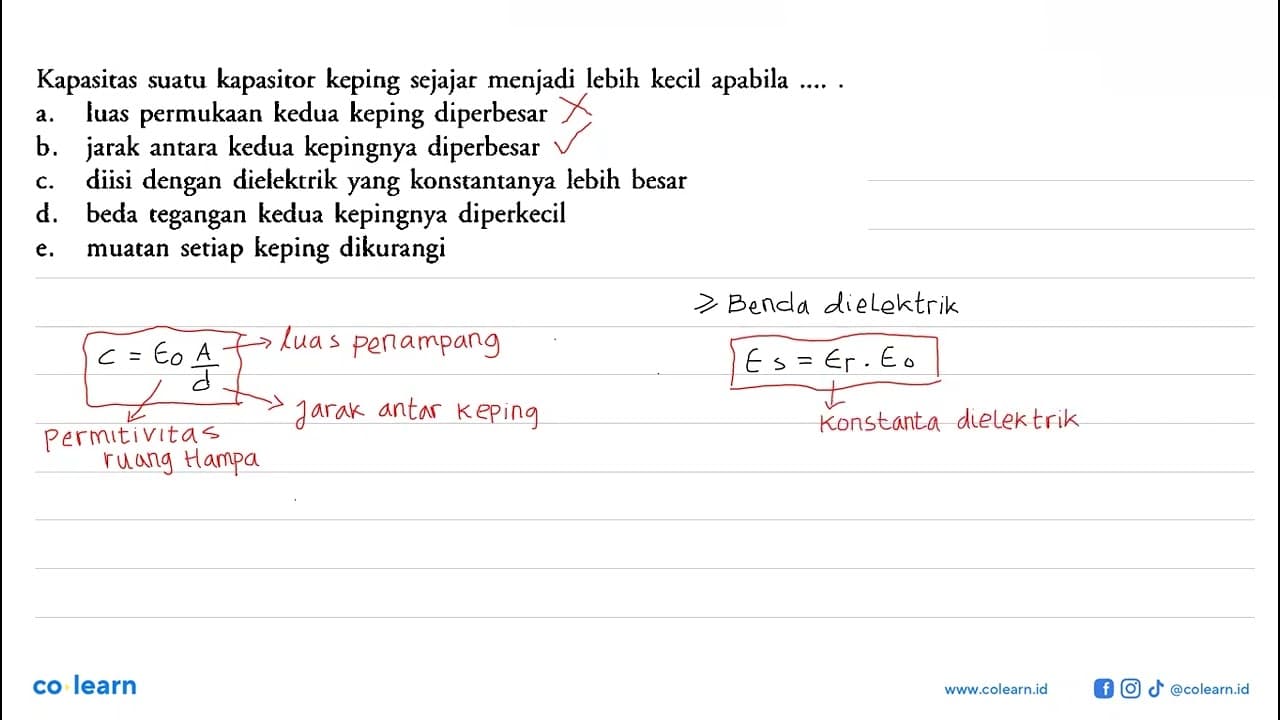 Kapasitas suatu kapasitor keping sejajar menjadi lebih kecil apabila .... .
a. luas permukaan kedua keping diperbesar
b. jarak antara kedua kepingnya diperbesar
c. diisi dengan dielektrik yang konstantanya lebih besar
d. beda tegangan kedua kepingnya diperkecil
e. muatan setiap keping dikurangi
> Benda dielektrik
C = ϵ0 A/d
luas penampang
ϵs = ϵr . ϵ0
jarak antar keping
konstanta dielektrik
permitivitas
ruang Hampa
co learn
www.colearn.id
@colearn.id